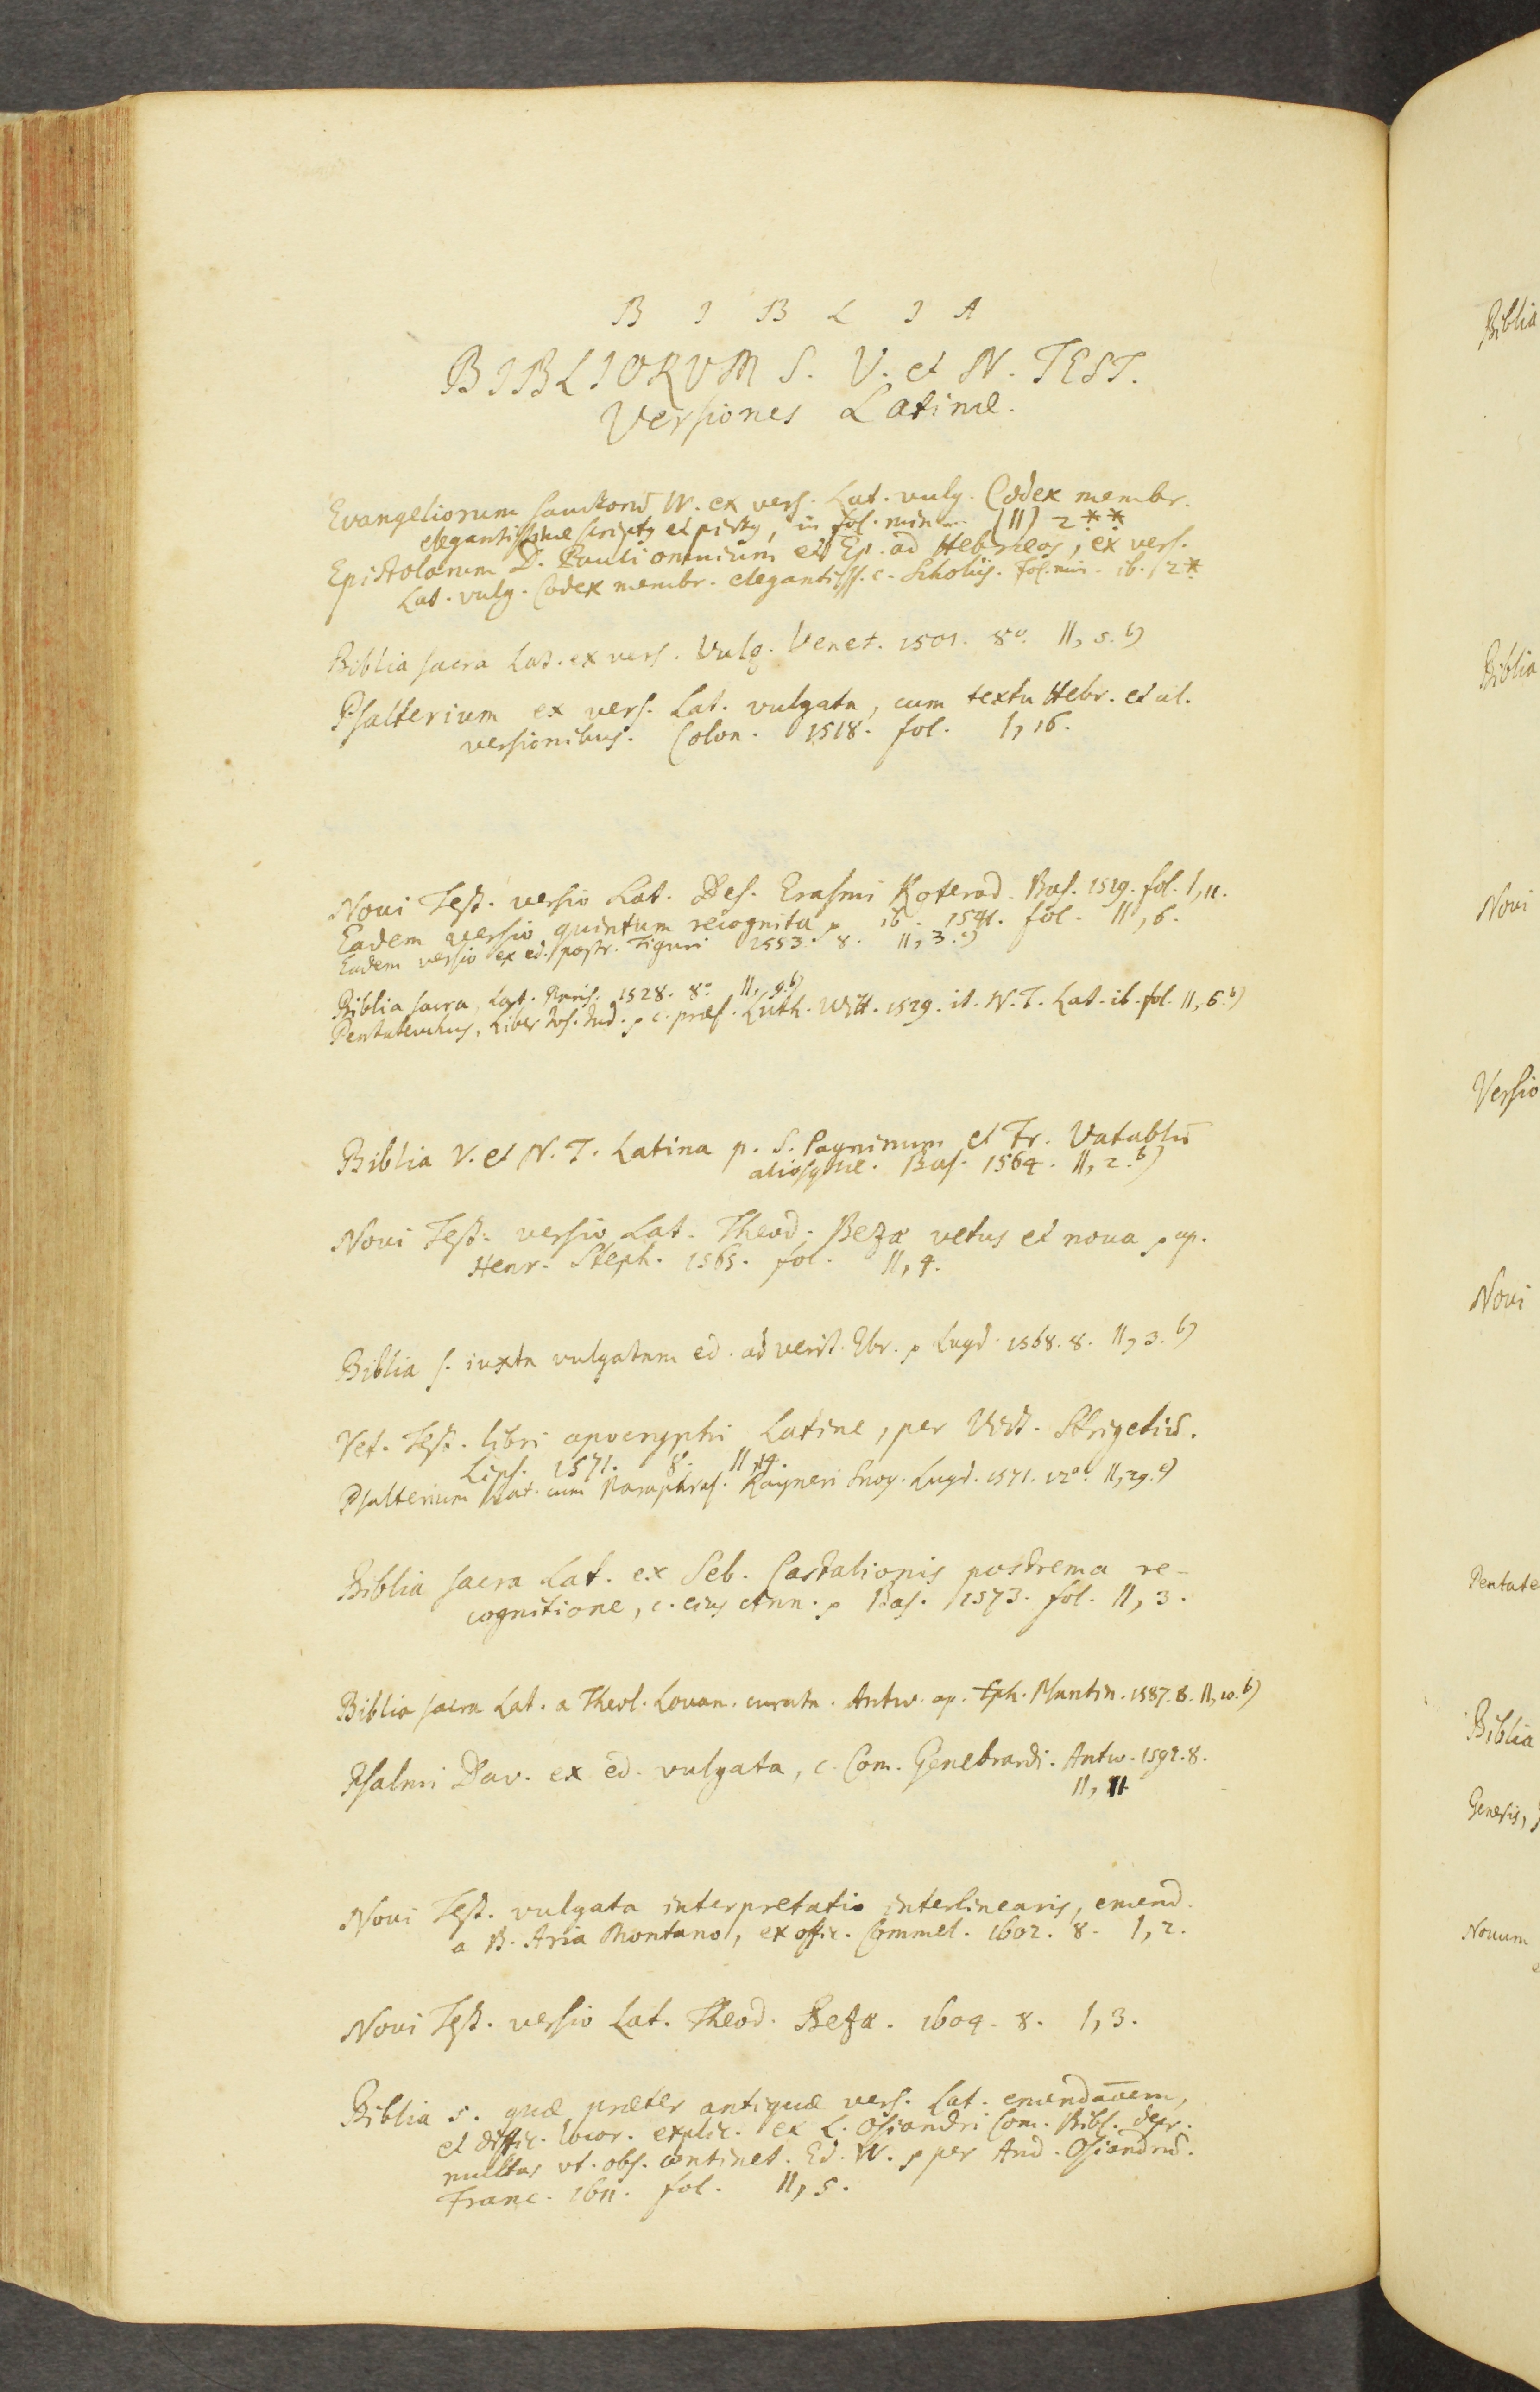 B I B L I A
BIBLIORVM S. V. et N. TEST.
Versiones Latinæ.
Evangeliorum sanctorū IV. ex vers. Lat. vulg. Codex membr.
elegantissime scriptus et pictus, in fol. min. (II) 2**
Epistolarum D. Pauli omnium et Ep. ad Hebræos, ex vers.
Lat. vulg. Codex membr. elegantiss. c. Scholiis. fol. min. ib. 2*
Biblia sacra Lat. ex vers. Vulg. Venet. 1501. 8o. II, 5. b)
Psalterium ex vers. Lat. vulgata, cum textu Hebr. et al.
versionibus. Colon. 1518. fol. I, 16.
Noui Test. versio Lat. Des. Erasmi Roterod. Bas. 1529. fol. I, 11.
Eadem versio quintum recognita, ib. 1541. fol. II, 6.
Eadem versio ex ed. postr. Tiguri 1553. 8. II, 3. c)
Biblia sacra Lat. Paris. 1528. 8o. II, 9. b)
Pentateuchus, Liber Jos. Jud. p c. præf. Luth. Witt. 1529. it. N. T. Lat. ib. fol. II, 6. b)
Biblia V. et N. T. Latina p. S. Pagninum et Fr. Vatablū
aliosque. Bas. 1564. II, 2. b)
Noui Test. versio Lat. Theod. Bezæ vetus et noua p ap.
Henr. Steph. 1565. fol. II, 4.
Biblia s. iuxta vulgatam ed. ad verit. Ebr. p Lugd. 1568. 8. II, 3. b)
Vet. Test. libri apocryphi Latine, per Vict. Strigeliū.
Lips. 1571. 8o. II 14.
Psalterium Lat. cum Paraphras. Rayneri Snoy. Lugd. 1571. 12o. II, 29. c)
Biblia sacra Lat. ex Seb. Castalionis postrema re-
cognitione, c. eius Ann. p Bas. 1573. fol. II, 3.
Biblia sacra Lat. a Theol. Louan. curata. Antw. ap. Cph. Plantin. 1587. 8. II, 10. b)
Psalmi Dav. ex ed. vulgata, c. Com. Genebrardi. Antw. 1592. 8.
II, 11
Noui Test. vulgata interpretatio interlinearis, emend.
a B. Aria Montano, ex offic. Commel. 1602. 8. I, 2.
Noui Test. versio Lat. Theod. Bezæ. 1604. 8. I, 3.
Biblia s. quæ præter antiquæ vers. Lat. emendatōem,
et diffic. locor. explic. ex L. Osiandri Com. Bibl. depr.
multas vt. obs. continet. Ed. IV. p per And. Osiandrū.
Franc. 1611. fol. II, 5.
Biblia
Biblia
Noui
Versio
Noui
Pentate
Biblia
Genesis,
Nouum